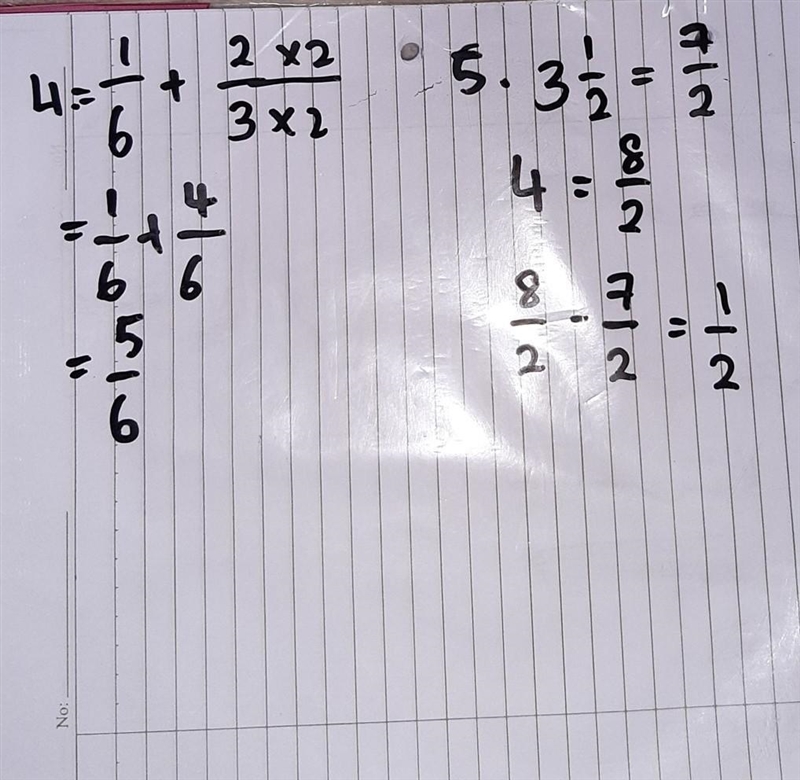 4. = 1/6 + (2 × 2)/(3 × 2)
= 1/6 + 4/6
= 5/6
5. 3 1/2 = 7/2
4 = 8/2
8/2 - 7/2 = 1/2
No: